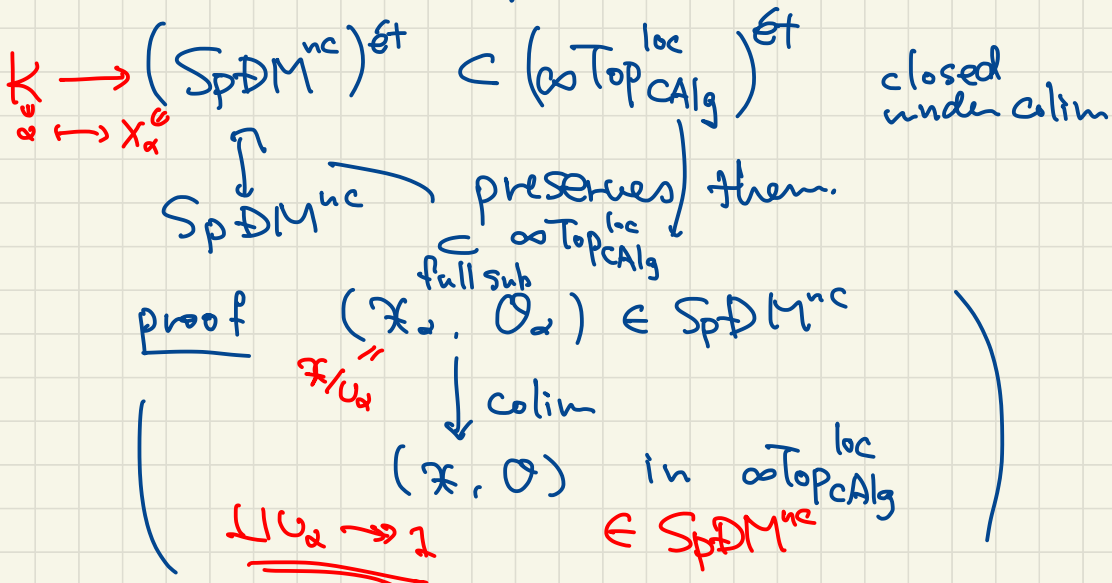 K → (SpDM^nc)^ét ⊂ (∞Top^loc_CAlg)^ét closed under colim
α ↦ X_α
SpDM^nc preserves them.
⊂ ∞Top^loc_CAlg
full sub
proof (𝒳_α, 𝒪_α) ∈ SpDM^nc
𝒳/U_α
colim
(𝒳, 𝒪) in ∞Top^loc_CAlg
∐U_α ↠ 1 ∈ SpDM^nc